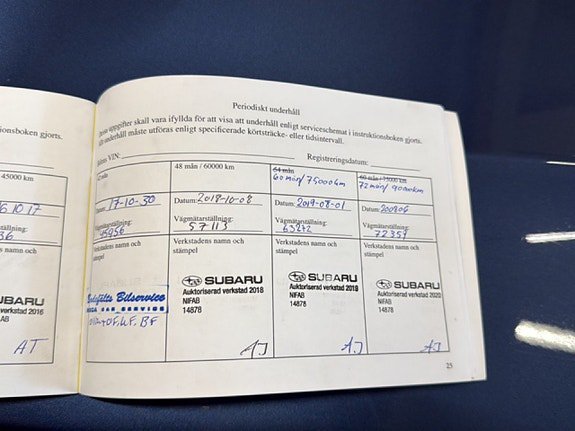 45000 km
s namn och
AB
AT
Periodiskt underhåll
uppgifter skall vara ifyllda för att visa att underhåll enligt serviceschemat i instruktionsboken gjorts.
underhåll måste utföras enligt specificerade körsträcke- eller tidsintervall.
VIN: Registreringsdatum:
Datum: 17-10-30
Vägmätarställning:
Verkstadens namn och
stämpel
Bilservice
CAR SERVICE
48 mån / 60000 km
Datum: 2018-10-08
Vägmätarställning:
57113
Verkstadens namn och
stämpel
SUBARU
Auktoriserad verkstad 2018
NIFAB
14878
AJ
60 mån/75000km
Datum: 2019-08-01
Vägmätarställning:
Verkstadens namn och
stämpel
SUBARU
Auktoriserad verkstad 2018
NIFAB
14878
AJ
60 mån / 75000 km
72 mån/ 90000km
Datum:
Vägmätarställning:
72359
Verkstadens namn och
stämpel
SUBARU
Auktoriserad verkstad 2020
NIFAB
14878
AJ
25